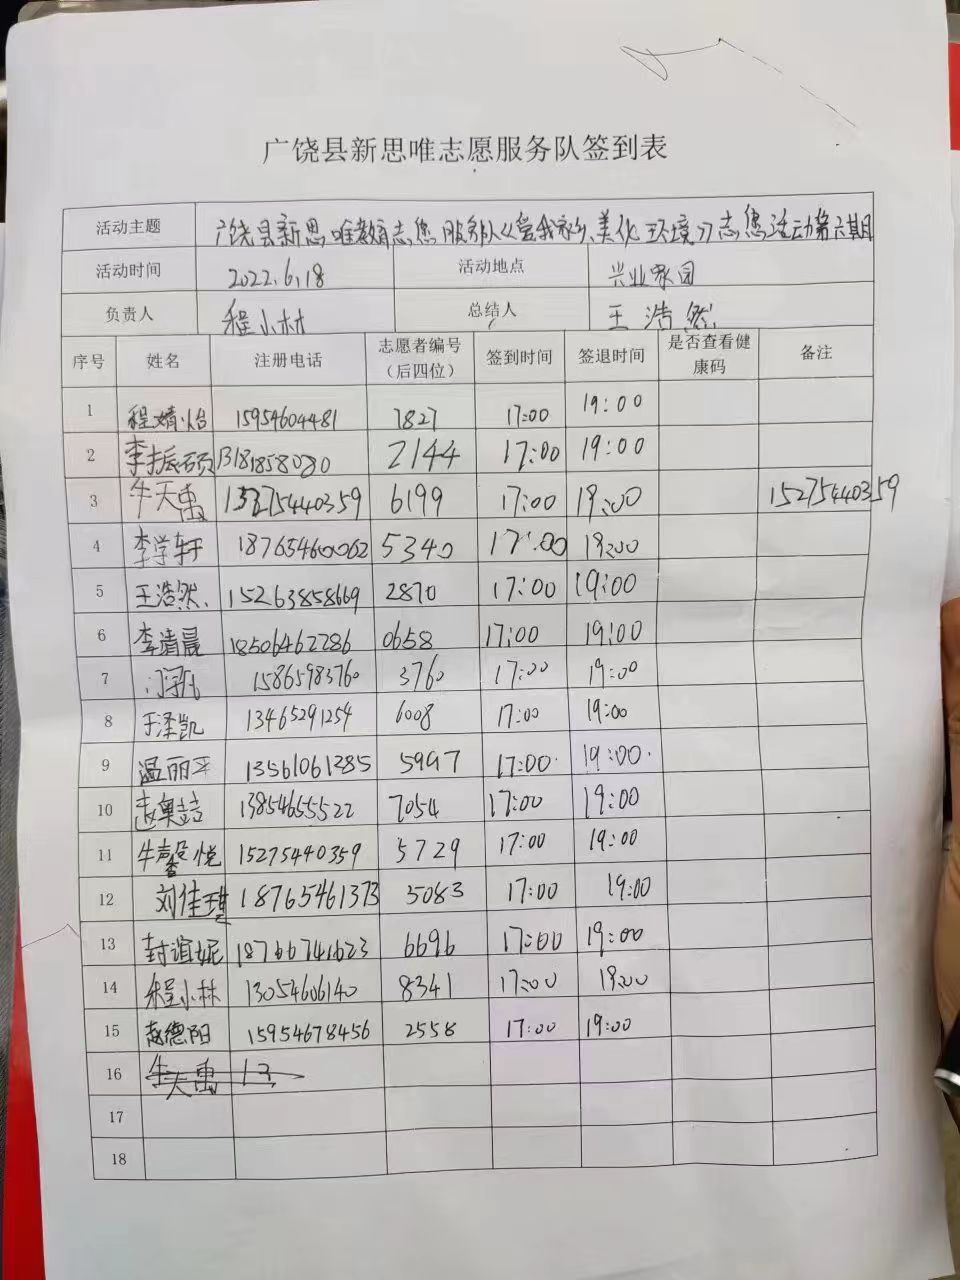 广饶县新思唯志愿服务队签到表
活动主题 广饶县新思唯教育志愿服务队《爱我家乡、美化环境》志愿活动第六期
活动时间 2022.6.18 活动地点 兴业家园
负责人 程小林 总结人 王浩然
序号 姓名 注册电话 志愿者编号（后四位） 签到时间 签退时间 是否查看健康码 备注
1 程婧怡 15954604481 7827 17:00 19:00
2 李振硕 13181858080 2144 17:00 19:00
3 牛天禹 6199 17:00 19:00 15275440359
4 李学轩 18765460062 5340 17:00 19:00
5 王浩然 15263858669 2870 17:00 19:00
6 李清晨 18506462286 0658 17:00 19:00
7 15865983760 3760 17:00 19:00
8 于泽凯 13465291254 6008 17:00 19:00
9 温丽平 13561061285 5997 17:00 19:00
10 13854655522 7054 17:00 19:00
11 牛馨悦 15275440359 5729 17:00 19:00
12 刘佳琪 18765461373 5083 17:00 19:00
13 封谊妮 18766741623 6696 17:00 19:00
14 程小林 13054606140 8341 17:00 19:00
15 赵德阳 15954678456 2558 17:00 19:00
16 牛天禹 13
17
18